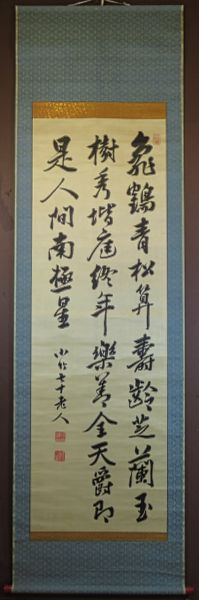 龜鶴青松算壽齡芝蘭玉
樹秀堦庭終年樂善全天爵即
是人間南極星
小竹七十老人